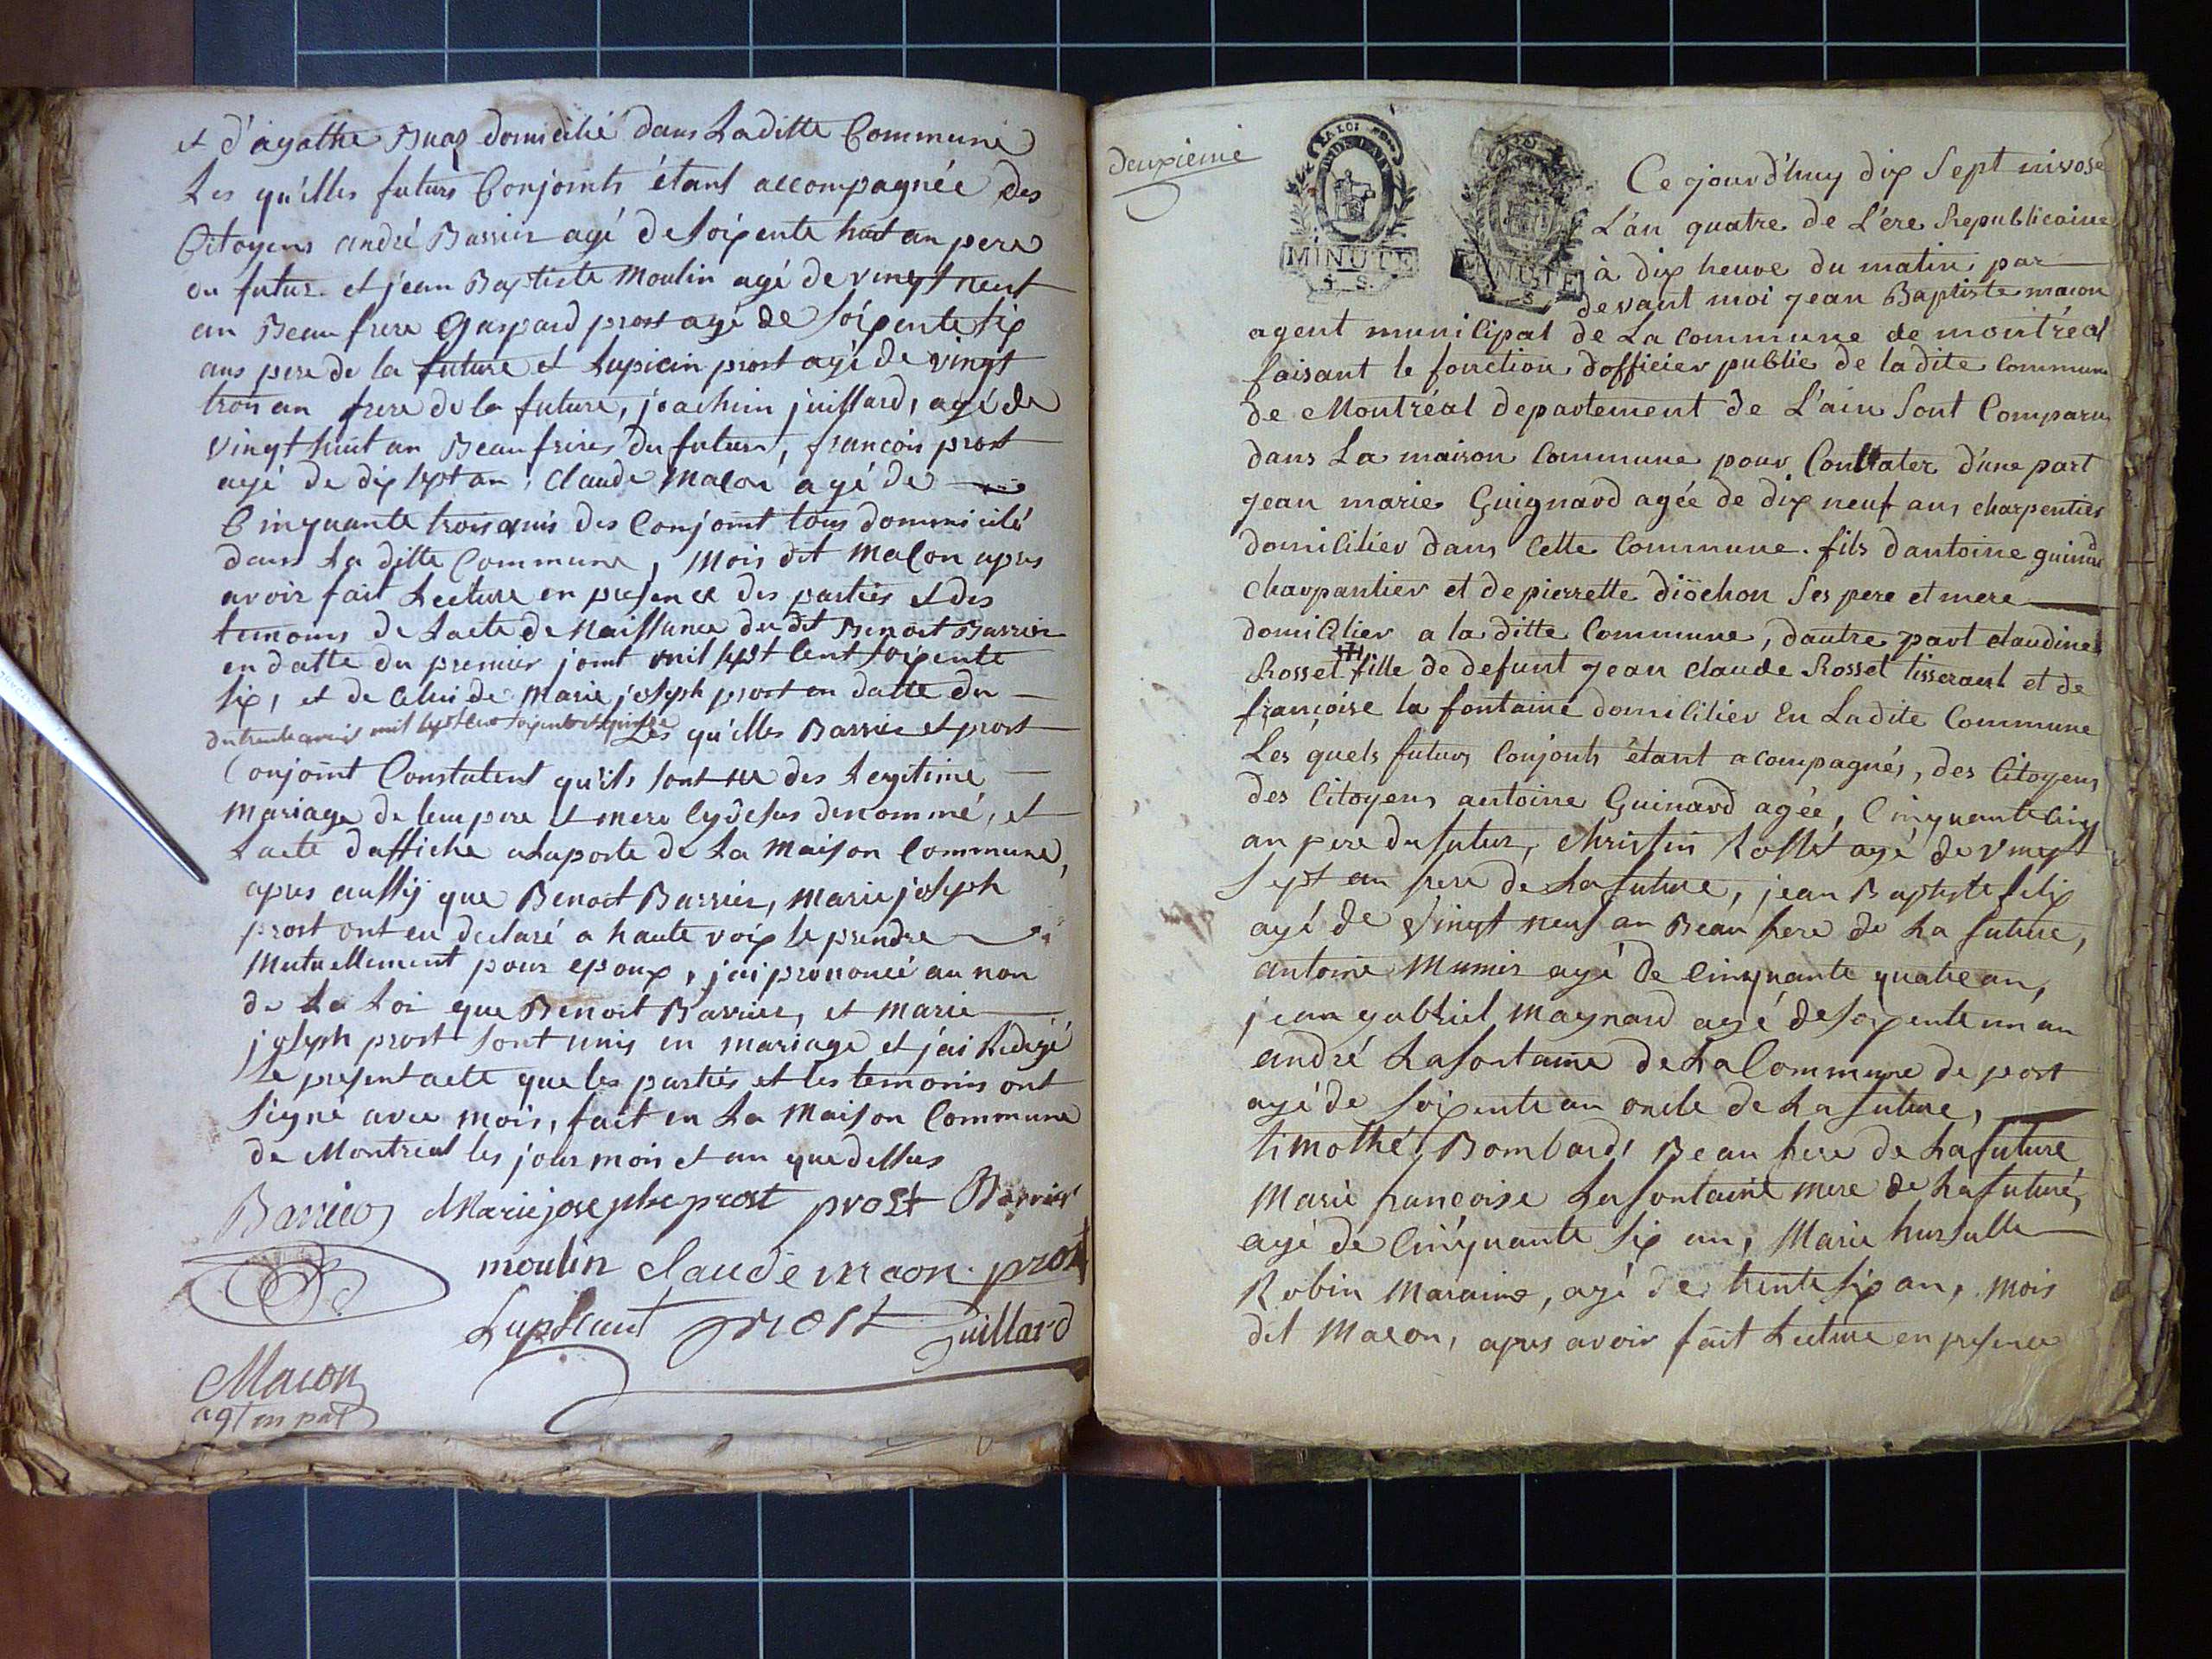 et d'agathe Buaz domicilié dans Laditte Commune
Les qu'illes futurs Conjoints étant accompagnée des
Citoyens andré Barrier agé de soixente huit an pere
du futur et jean Baptiste Moulin agé de vingt neuf
an Beau frere Gaspard prost agé de soixente six
ans pere de la future et Lupicin prost agé de vingt
trois an frere de la future, joachim juillard, agé de
vingt huit an Beau freres du futur, francois prost
agé de dix sept an, Claude Macon agé de
Cinquante trois amis des Conjoint tous dommicilé
dans La ditte Commune, Mois dit Macon apres
avoir fait Lecture en presence des parties et des
temoins de Lacte de Naissance du dit Benoit Barrier
en datte du premier mil sept Cent soixente
six, et de Celui de Marie joseph prost en datte du
du trente mil sept Cent soixente
Les qu'illes Barrier et prost
Conjoint Constatent qu'ils sont des Legitime
Mariage de leur pere et mere cy desus denommé, et
Lacte daffiche a Laporte de La Maison Commune,
apres aussy que Benoit Barrier, Marie joseph
prost ont eu declaré a haute voix se prendre
Mutuellement pour epoux, j'ai prononcé au non
de La Loi que Benoit Barrier, et Marie
joseph prost sont unis en mariage et j'ai Redigé
Le present acte que les parties et les temoins ont
signé avec mois, fait en La Maison Commune
de Montreal les jour mois et an que dessus
Barrier Marie josephe prost prost Barrier
moulin claude macon prost
prost juillard
Macon
agt mpal
deuxieme
MINUTE
5. S.
MINUTE
Ce jourd'huy dix sept nivose
L'an quatre de L'ere Republicaine
à dix heure du matin par
devant moi jean Baptiste macon
agent municipal de La commune de montréal
faisant le fonction dofficier public de la dite commune
de Montréal departement de L'ain sont Comparu
dans La maison Commune pour Conttater d'une part
jean marie Guignard agée de dix neuf ans charpentier
domicilier dans Cette Commune. fils dantoine guinard
Charpantier et de pierrette diochon ses pere et mere
domicilier a la ditte Commune, dautre part claudine
Rosset fille de defunt jean claude Rosset tisserant et de
françoise la fontaine domicilier En Ladite Commune
Les quels futurs Conjoints étant acompagnés, des Citoyens
des Citoyens antoine Guinard agée, Cinquante Cinq
an pere du futur, Christin Rosset agé de vingt
sept an frere de La future, jean Baptiste felix
agé de vingt neuf an Beau frere de La future,
antoine Munier agé de Cinquante quatre an,
jean gabriel Maynard agé de soixente un an
andré Lafontaine de La Commune de port
agé de soixente an oncle de La future,
timothé Bombard, Beau frere de La future
Marie francoise Lafontaine mere de La future,
agé de Cinquante six an, Marie hursulle
Robin Maraine, agé de trente six an, mois
dit Macon, apres avoir fait Lecture en presence